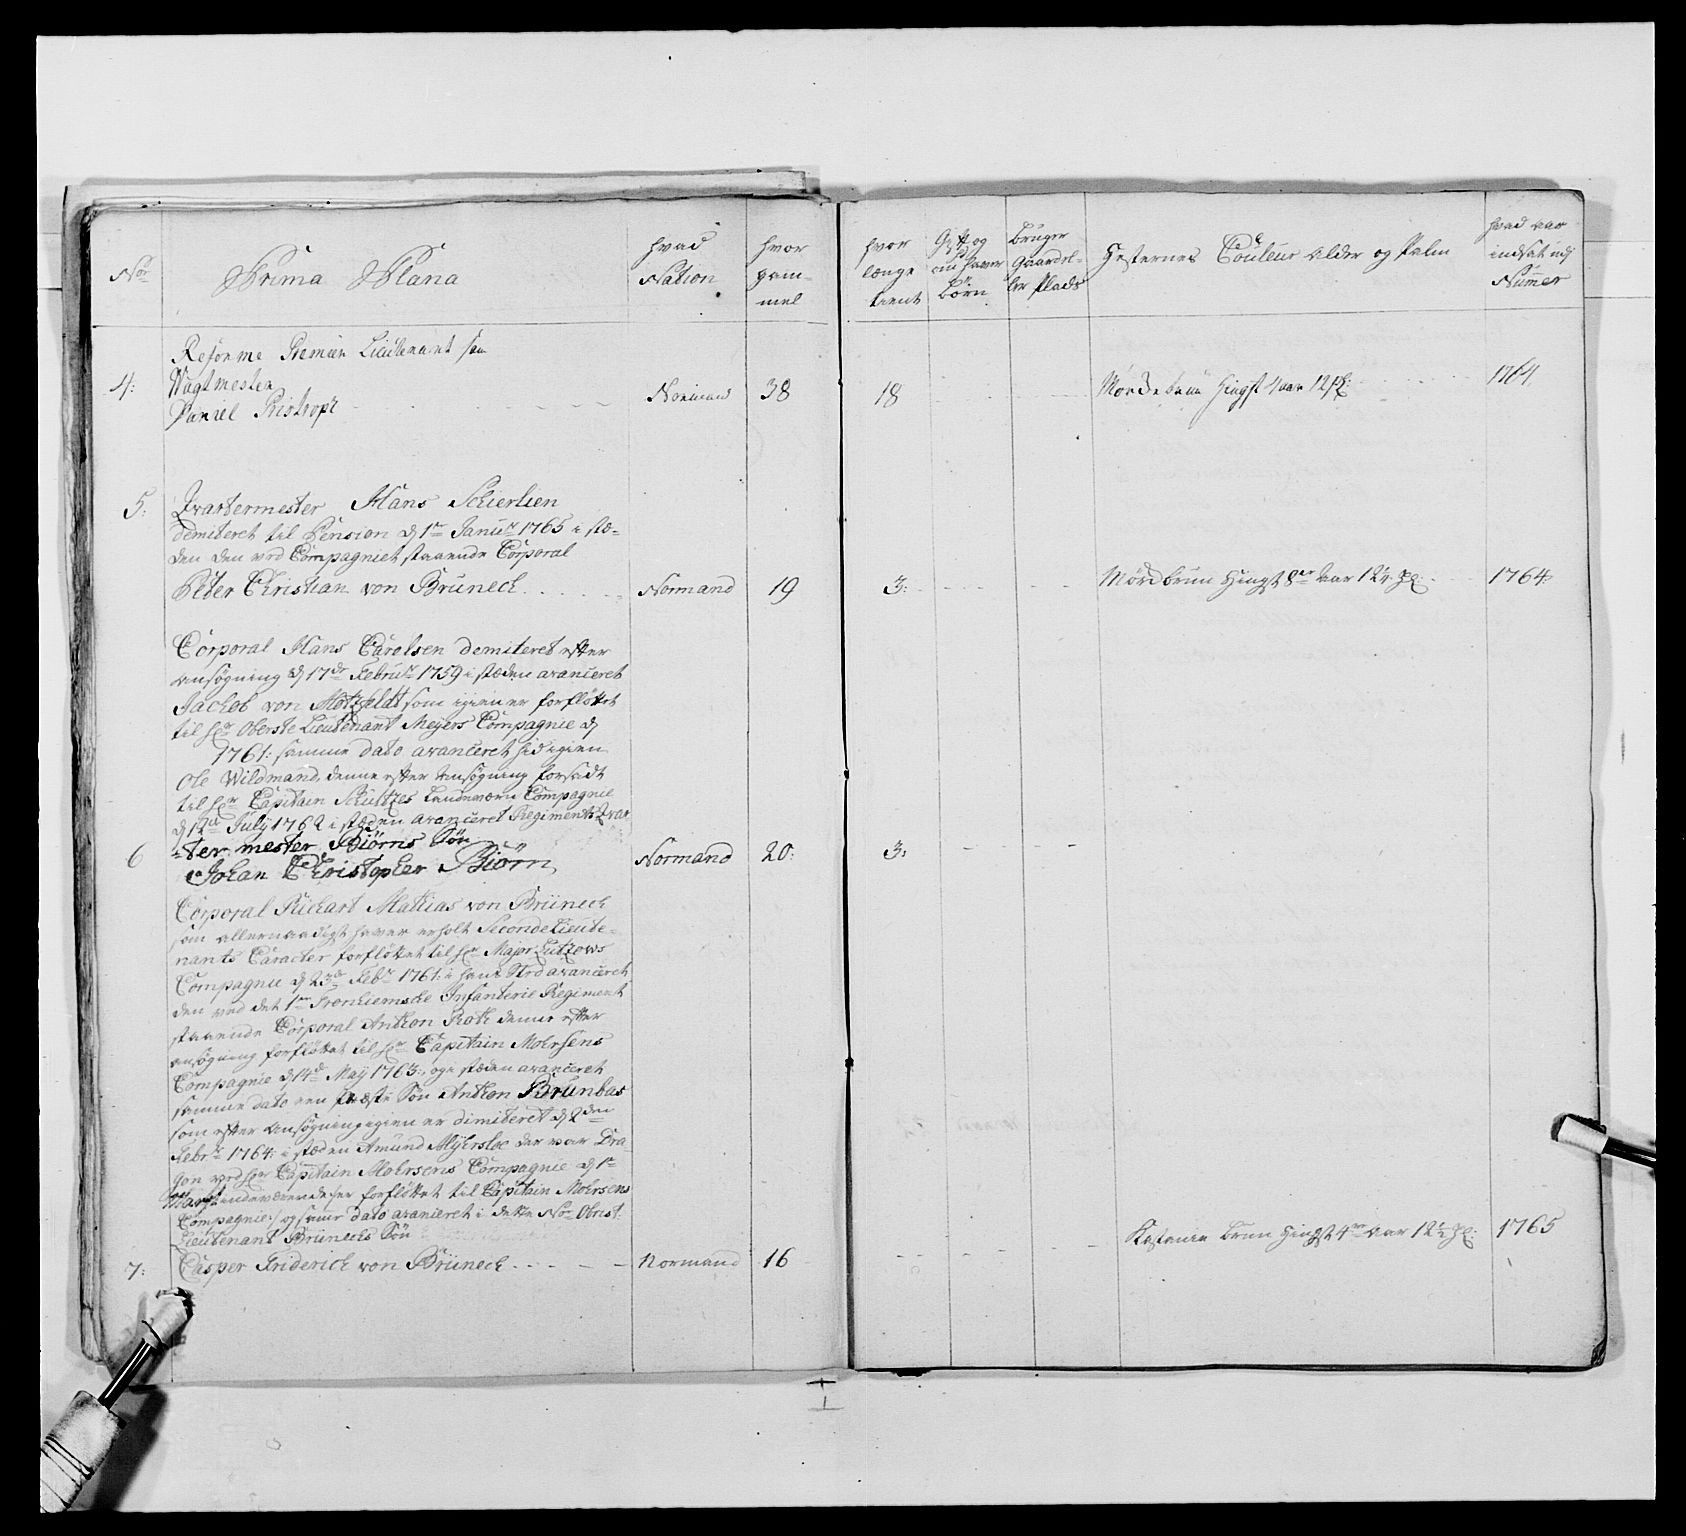 Nor
Prima Plana
hvad
Nation
hvor
gam-
mel
hvor
længe
tient
Gift og
om haver
Børn
bruger
Gaardel-
ler Plads
Hesternes Couleur alder og Palm
hvad aar
indsat udj
Numer
Reforme Premier Lieutenant saa
4: Wagtmester
Daniel Pristropt Normand 38 18 Mørdebrun Hingst 4 aar 12 1764
5: Qvartermester Hans Schierlien
demiteret til Pension d 1te Janur 1765 i stæ-
den den ved Compagniet staaende Corporal
Peter Christian von Brüneck Normand 19 3: Mørdbrun Hingst 8er aar 12 1764:
Corporal Hans Carelsen demiteret efter
ansøgning d 17de Februr 1759 i stæden avanceret
Jachob von Motzfeldt som igien er forfløttet
til hr Oberste Lieutenant Meyers Compagnie d
1761: samme dato avanceret hid igien
Ole Wildmand, denne efter ansøgning forsadt
til hr Capitain Schultzes Landeværn Compagnie
d 12te July 1762 i stæden avanceret Regiments Qvar
-ter mester Biörns Sön
6 Johan Christopher Biörn Normand 20: 3:
Corporal Richart Mathias von Brüneck
som allernaadigst haver erholt Seconde Lieute-
nants Caracter forfløttet til hr Major Lutzows
Compagnie d 23de Febr 1761: i hans Sted avanceret
den ved det 1te Tronhiemske Infanterie Regiment
staaende Corporal Anthon Roth denne efter
ansøgning forfløttet til hr Capitain Mohrsens
Compagnie d 14de May 1763: og i stæden avanceret
samme dato een Præste Sön Anthon Brünbas
som efter ansøgning igien er dimiteret d 2den
Febr 1764: i stæden Amund der var Dra
gon ved hr Capitain Mohrsens Compagnie d 1te
Marty forfløttet til Capitain Mohrsens
Compagnie, og samme dato avanceret i dette No Obrist
Lieutenant Brünechs Sön
7: Casper Friderich von Brüneck Normand 16 Kastanie brun Hingst 4re aar 12½ 1765